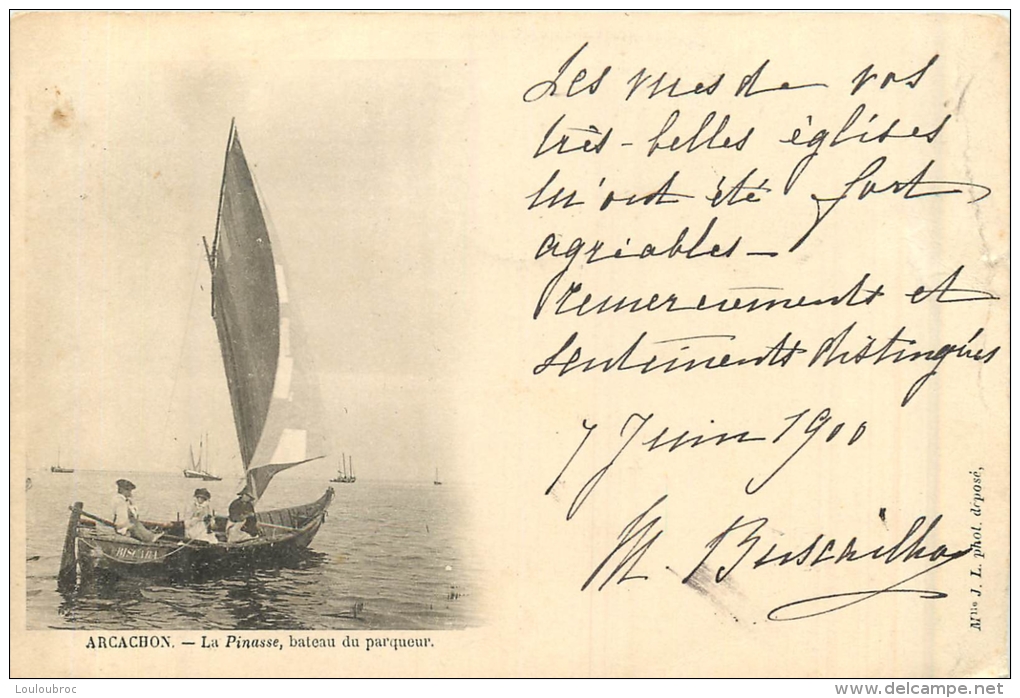 Les vues de vos
très-belles églises
m'ont été fort
agréables -
remerciements et
sentiments distingués
7 Juin 1900
M.
BISCARA
ARCACHON. — La Pinasse, bateau du parqueur.
Mlle J. L. phot. déposé,
Louloubroc
www.delcampe.net